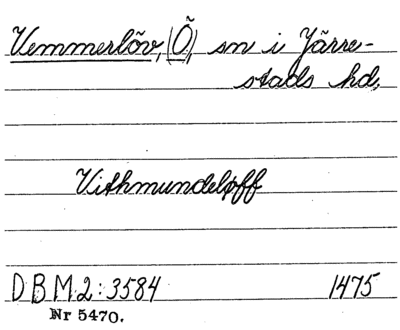 Vemmerlöv, (Ö), sn i Järre-
stads hd,
Vithmundeløff
DBM 2:3584 1475
Nr 5470.